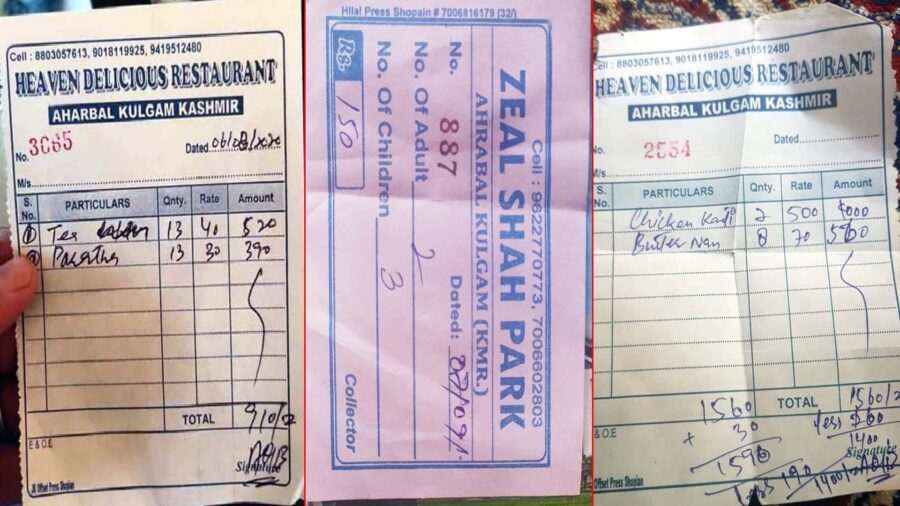 Cell : 8803057613, 9018119925, 9419512480
HEAVEN DELICIOUS RESTAURANT
AHARBAL KULGAM KASHMIR
No. 3065
Dated 06/08/2020
M/s
S. No. PARTICULARS Qnty. Rate Amount
1 Tea 13 40 520
2 Paratha 13 30 390
TOTAL 910/-
E & O.E
Signature
JK Offset Press Shopian
Hilal Press Shopain # 7006816179 (32/)
Cell : 9622770773, 7006602803
ZEAL SHAH PARK
AHRABAL KULGAM (KMR.)
No. 887
Dated:
No. Of Adult 2
No. Of Children 3
Rs. 150
Collector
Cell : 8803057613, 9018119925, 9419512480
HEAVEN DELICIOUS RESTAURANT
AHARBAL KULGAM KASHMIR
No. 2554
Dated
M/s
S. No. PARTICULARS Qnty. Rate Amount
Chicken 2 500 1000
Butter Nan 8 70 560
TOTAL 1560/-
1560
+ 30
1590
less 160
1400
less 190
1400/-
Signature
& O.E
Offset Press Shopian